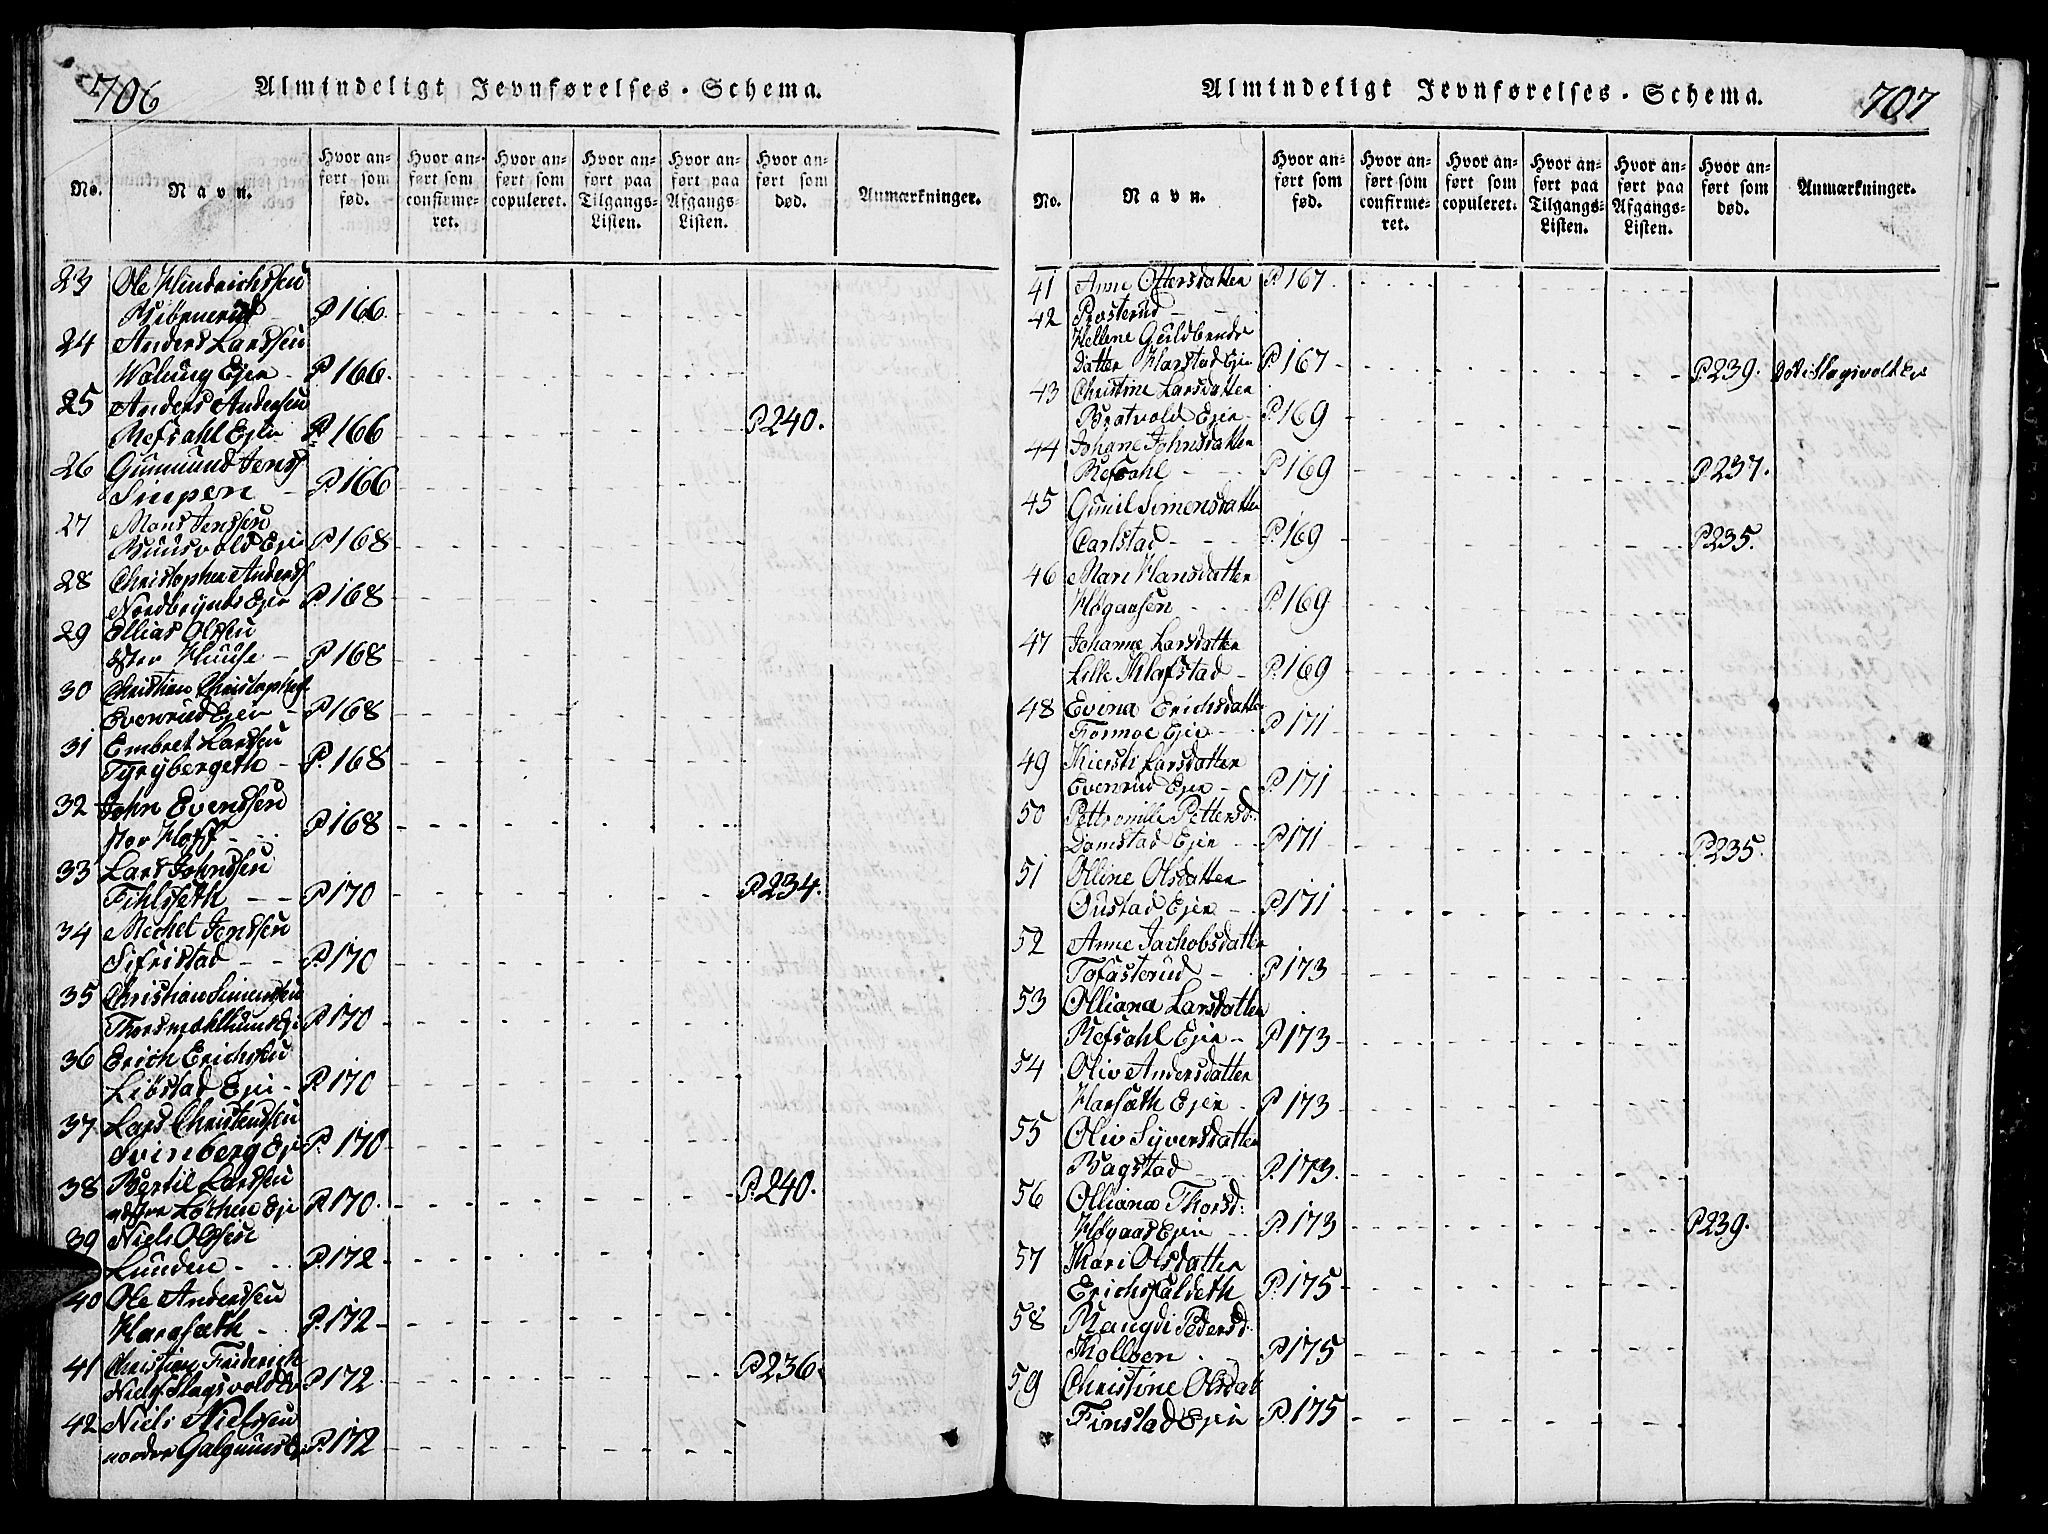 706 Almindeligt Jevnførelses-Schema.
No. Navn. Hvor anført som fød. Hvor anført som confirmeret. Hvor anført som copuleret. Hvor anført paa Tilgangs-Listen. Hvor anført paa Afgangs-Listen. Hvor anført som død. Anmærkninger.
23 Ole Hindrichssen
P.166.
24 Anders Larssen
Wolung Ejer P.166.
25 Anders Andersen
Refsahl Ejer P.166 P.240.
26 Gunmund Jens
P.166
27 Mons Jenssen
Ruusvold Eje P.168
28 Christopher Anders
Nordbrynds Ejer P.168
29 Ellias Olssen
øster Huuse P.168
30 Christian Christophs
Evenrud Ejer P.168
31 Embret Larssen
Tyrybergeth P.168
32 John Evendsen
stor Hoff P.168
33 Lars Johnssen
Fihlseth P.170 P.234.
34 Mechel Jenssen
Sifristad P.170
35 Christian Simenssen
P.170
36 Erich Erichssen
Liøstad Eje P.170
37 Lars Christenssen
Svinberg Ej P.170
38 Bertil Larssen
Løthen Eje P.170. P.240.
39 Niels Olssen
Lunden P.172
40 Ole Anderssen
Harsæth P.172
41 Christian Friderich
Niels Slagsvold P.172 P.236.
42 Niels Nielssen
nordre P.172
Almindeligt Jevnførelses-Schema. 707
No. Navn. Hvor anført som fød. Hvor anført som confirmeret. Hvor anført som copuleret. Hvor anført paa Tilgangs-Listen. Hvor anført paa Afgangs-Listen. Hvor anført som død. Anmærkninger.
41 Anne Ottersdatter P.167
42 Prøsterud
Hellene Guldbrands
datter Harstad Ejer P.167 P.239. Slagsvold Eje
43 Christine Larsdatter
Brotvold Ejer P.169
44 Johane Johnsdatter
Refsahl P.169 P.237.
45 Gunil Simensdatter
Carlstad P.169 P.235.
46 Mari Hansdatter
Høgaasen P.169
47 Johanne Larsdatter
Lille Klafstad P.169
48 Evina Erichsdatter
Formoe Ejer P.171
49 Kiersti Larsdatter
Evenrud Ejer P.171
50 Pettronille Pettersd:
Domstad Ejer P.171 P.235.
51 Olline Olsdatter
Oustad Ejer P.171
52 Anne Jachobsdatter
Tofasterud P.173
53 Olliana Larsdatter
Refsahl Ejer P.173
54 Oliv Andersdatter
Harsæth Ejer P.173
55 Oliv Syversdatter
Bagstad P.173.
56 Olliana Thorsd:
Høgaas Ejer P.173 P.239.
57 Kari Olsdatter
P.175
58 Raugdi Pedersd:
Kolloen P.175
59 Christine Olsdat
Finstad Ejer P.175